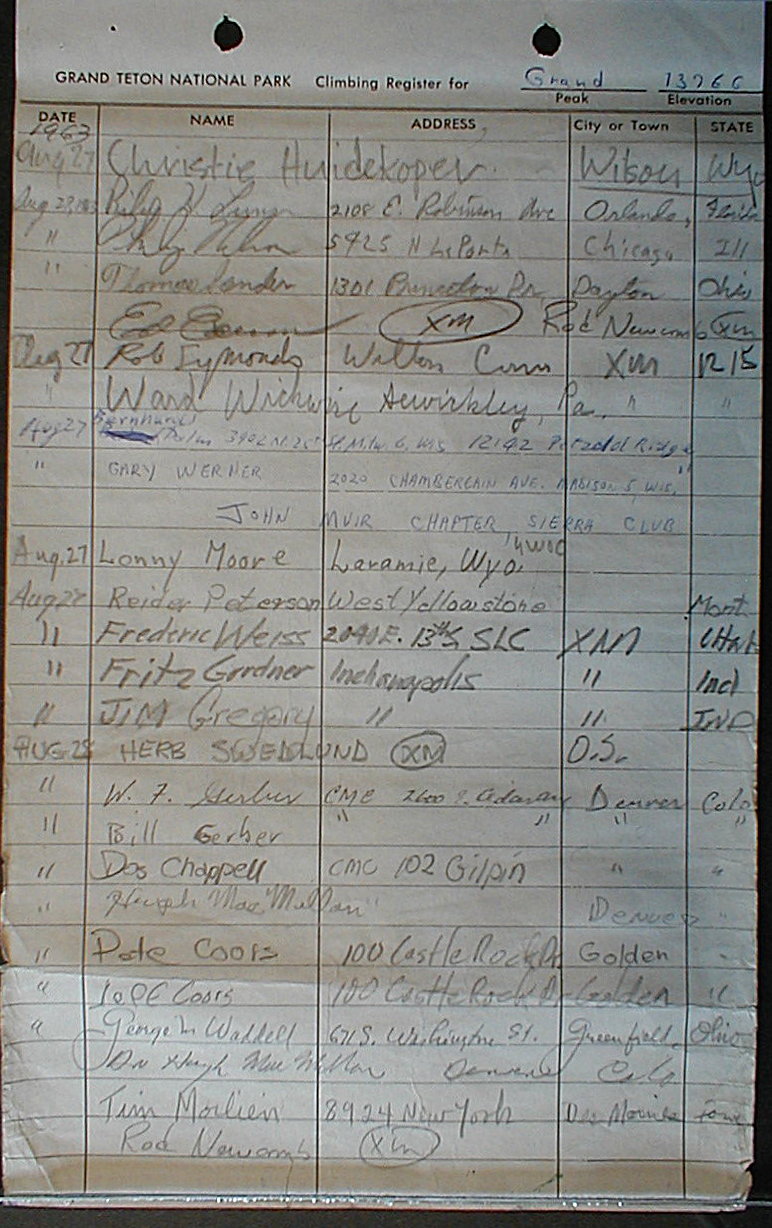 GRAND TETON NATIONAL PARK Climbing Register for Grand 13766
Peak Elevation
DATE NAME ADDRESS City or Town STATE
1963
Aug 27 Christie Huidekoper Wilson Wyo
Aug 27, 1963 Philip 2108 E. Robinson Ave Orlando, Florida
" 5925 N LaPorte Chicago Ill
" Thomas Lander 1301 Princeton Dr. Dayton Ohio
Ed XM Rod Newcomb XM
Aug 27 Rob Symonds Walton Conn XM 12 15
" Ward Sewickley, Pa. " "
Aug 27 Bernhard 3902 N. 25th St. Milw. 6, Wis 12:42 Petzoldt Ridge
" GARY WERNER 2020 CHAMBERLAIN AVE. MADISON 5, WIS. "
JOHN MUIR CHAPTER, SIERRA CLUB
Aug. 27 Lonny Moore Laramie, Wyo.
Aug 27 Reider Peterson West Yellowstone Mont
" Frederic Weiss 2040 E. 13th S, SLC XM Utah
" Fritz Gardner Indianapolis " Ind
" JIM Gregory " " IND
AUG 28 HERB SWEDLUND XM O.S.
" W. F. Gerber CMC 2600 S. Denver Colo
" Bill Gerber " " " "
" Dos Chappell CMC 102 Gilpin " "
" Hugh Mac Millan " Denver "
" Pete Coors 100 Castle Rock Dr Golden
" Joe Coors 100 Castle Rock Dr Golden "
" George M Waddell 671 S. Washington St. Greenfield, Ohio
Dr Hugh Mac Millan Denver Colo
Tim 8924 New York Des Moines Iowa
Rod Newcomb XM